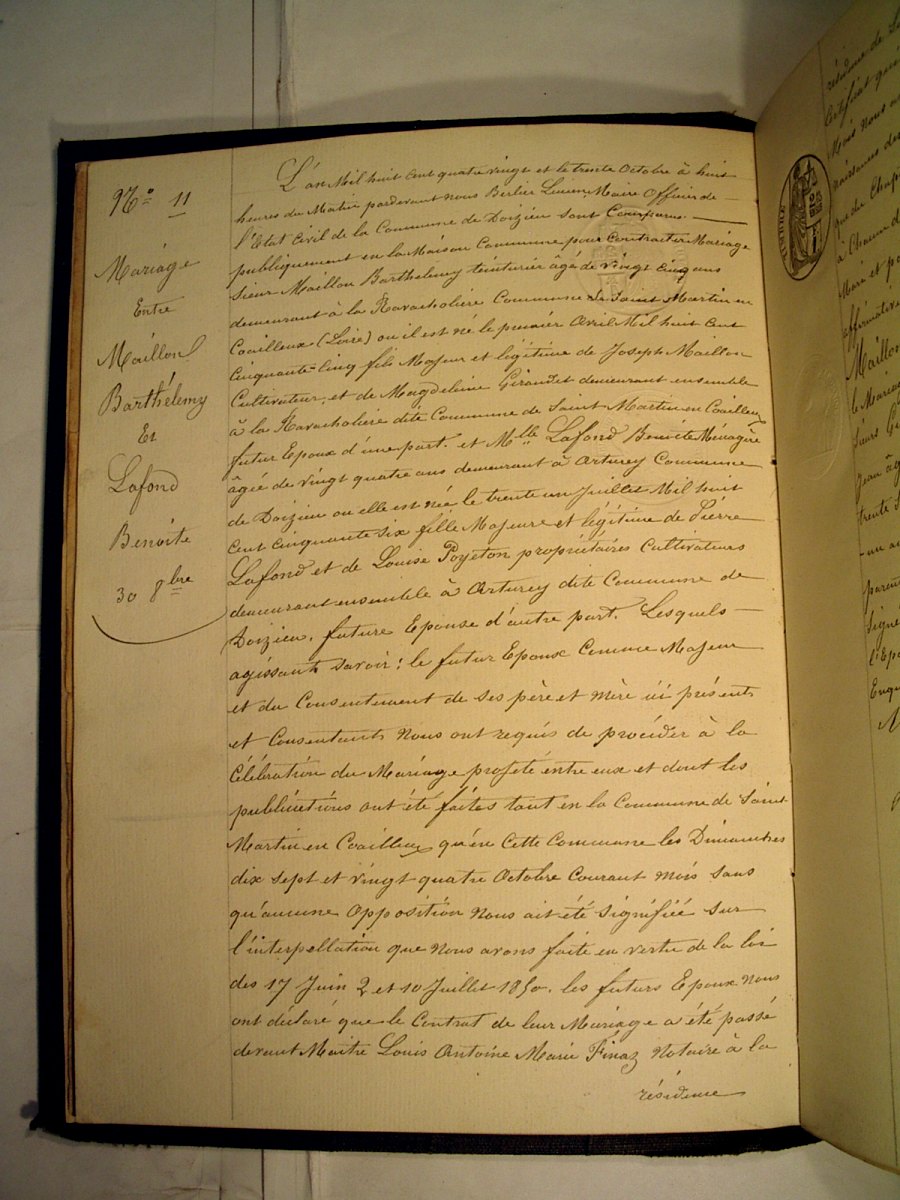 No 11
Mariage
Entre
Maillon
Barthélemy
Et
Lafond
Benoite
30 8bre
L'an Mil huit Cent quatre vingt et le trente Octobre à huit
heures du Matin pardevant nous Berlier Lucien Maire Officier de
l'Etat Civil de la Commune de Doizieu sont Comparus
publiquement en la Maison Commune pour Contracter Mariage
Sieur Maillon Barthelemy teinturier âgé de vingt cinq ans
demeurant à la Ravacholiere Commune de Saint Martin en
Coailleux (Loire) ou il est né le premier Avril Mil huit Cent
Cinquante-Cinq fils Majeur et légitime de Joseph Maillon
Cultivateur, et de Magdeleine Giraudet demeurant ensemble
à la Ravacholiere dite Commune de Saint Martin en Coailleux
futur Epoux d'une part. et Mlle Lafond Benoite Ménagère
âgée de vingt quatre ans demeurant à Arturey Commune
de Doizieu ou elle est née le trente un Juillet Mil huit
Cent Cinquante Six fille Majeure et légitime de Pierre
Lafond et de Louise Poyeton propriétaires Cultivateurs
demeurant ensemble à Arturey dite Commune de
Doizieu, future Epouse d'autre part. Lesquels
agissant savoir : le futur Epoux Comme Majeur
et du Consentement de ses père et mère ici présents
et Consentants Nous ont requis de procéder à la
Célébration du Mariage projeté entre eux et dont les
publications ont été faites tant en la Commune de Saint
Martin en Coailleux qu'en Cette Commune les Dimanches
dix sept et vingt quatre Octobre Courant mois sans
qu'aucune Opposition Nous ait été Signifiée Sur
l'interpellation que Nous avons faite en vertu de la loi
des 17 Juin 2 et 10 Juillet 1850. les futurs Epoux Nous
ont déclaré que le Contrat de leur Mariage a été passé
devant Maitre Louis Antoine Marie Finaz Notaire à la
résidence
TIMBRE
résidence de
Certificat que
Mais nous a
naissances de
que du Chap
à Chacun d
Mari et po
affirmative
Maillon
le Mariage
Sieurs Gi
Jean âg
trente
un an
paren
Signé
l'Epo
Enqu